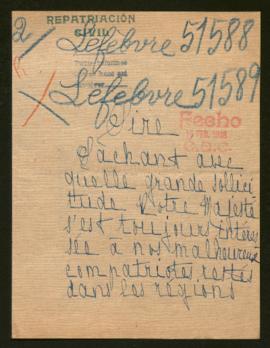 2/
REPATRIACIÓN
CIVIL
Lefebvre 51588
Lefebvre 51589
Fecho
Sire
Sâchant avec
quelle grande sollici
tude Votre Majesté
s'est toujours intéres
sée a nos malheureux
compatriotes restés
dans les régions